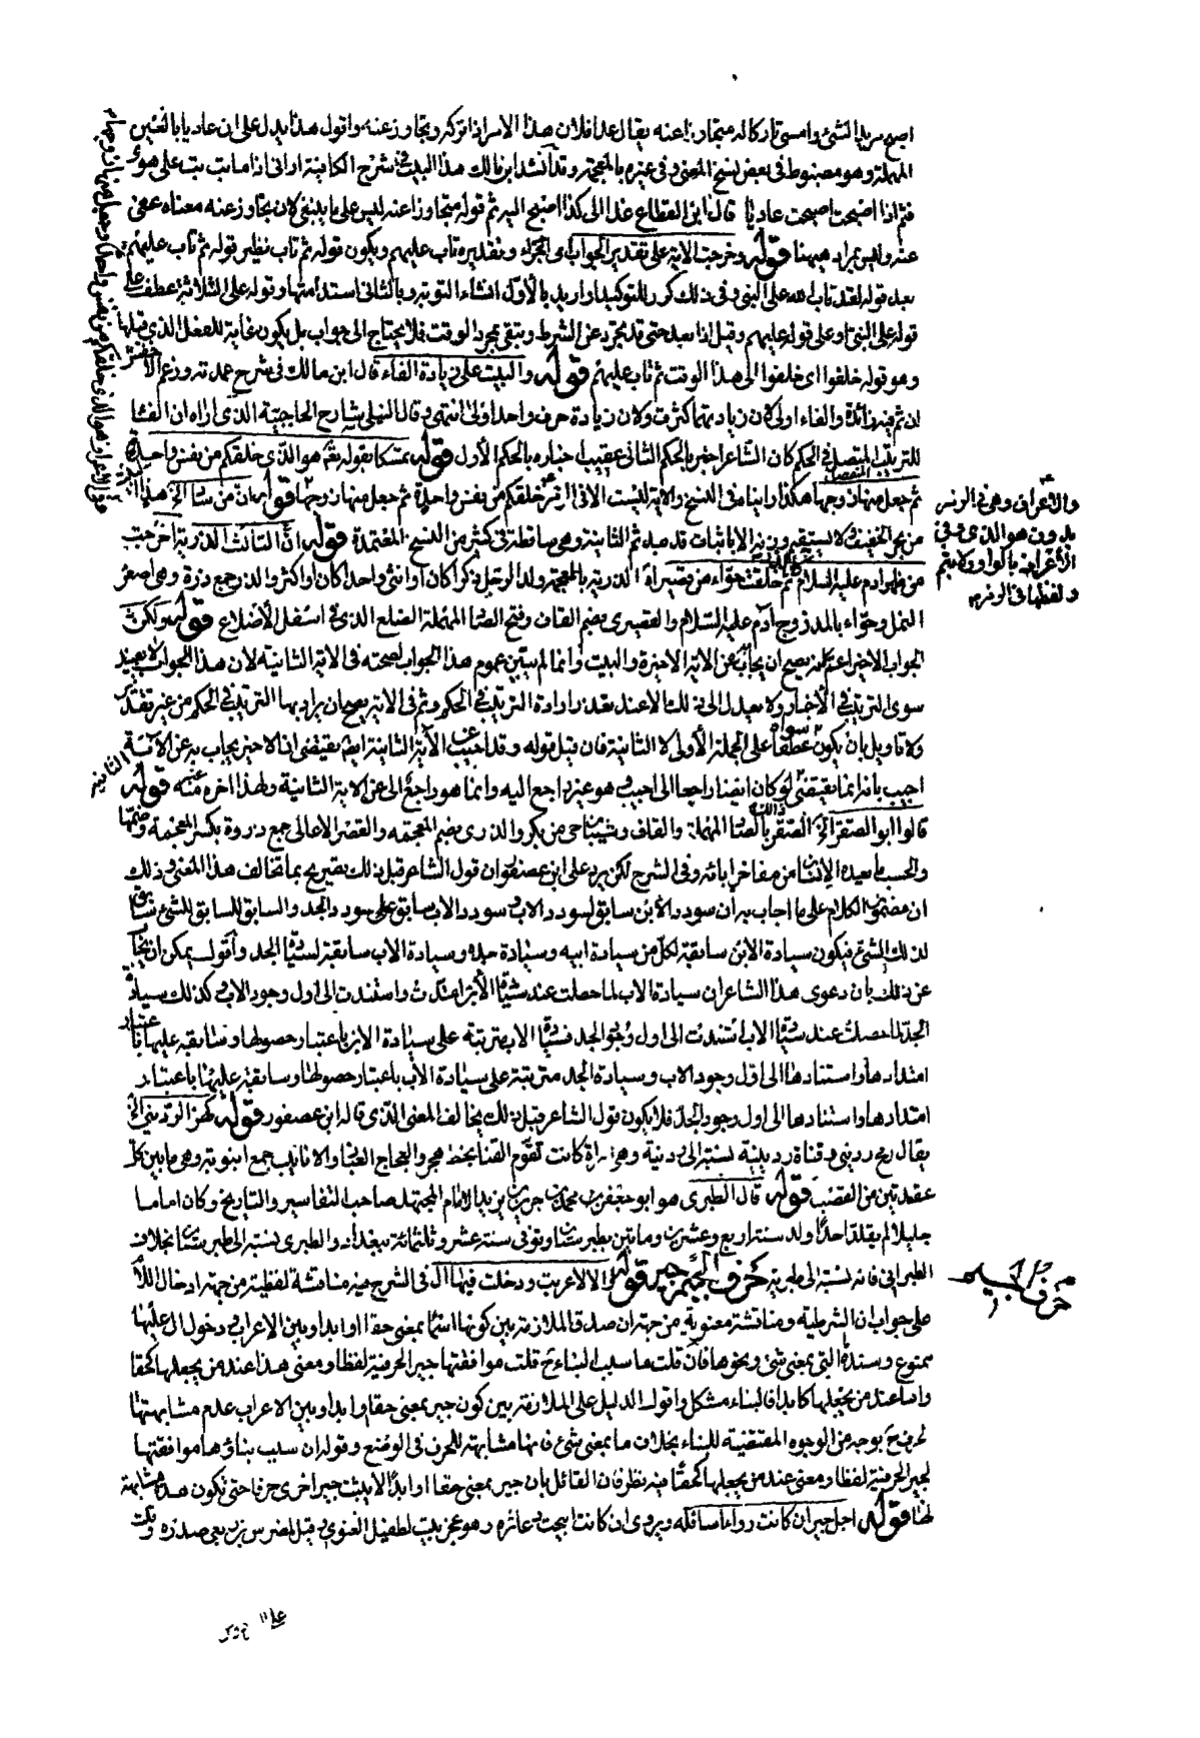 اصبح مريد الشئ وامسى تاركا له متجاوزا عنه يقال عدا فلان هذا الامر اذا تركه وتجاوز عنه واقول هذا يدل على ان عاديا بالعين
المهملة وهو مضبوط فى بعض نسخ المغنى وفى غيره بالمعجمة وقد انشد ابن مالك هذا البيت فى شرح الكافية ارانى اذا ما بت بت على هوى
فثم اذا اصبحت اصبحت عاديا قال ابن القطاع غدا الى كذا اصبح اليه ثم قوله متجاوزا عنه ليس على ما ينبغى لان تجاوز عنه معناه عفى
عنه وليس بمراد ههنا قوله وخرجت الاية على تقدير الجواب اى الجزاء وتقديره تاب عليهم ويكون قوله ثم تاب نظير قوله ثم تاب عليهم
بعد قوله لقد تاب الله على النبى وفى ذلك كرر للتوكيد او اريد بالاول انشاء التوبة وبالثانى استدامتها وقوله على الثلاثة عطف على
قوله على النبى او على قوله عليهم وقيل اذا بعد حتى قد تجرد عن الشرط وتبقى لمجرد الوقت فلا يحتاج الى جواب بل يكون غاية للفعل الذى قبلها
وهو قوله خلفوا اى خلفوا الى هذا الوقت ثم تاب عليهم قوله والبيت على زيادة الفاء قال ابن مالك فى شرح عمدته وزعم الاخفش
ان ثم فيه زائدة والفاء اولى لان زيادتها كثرت ولان زيادة حرف واحد اولى انتهى وقال النيلى شارح الحاجبية الذى اراه ان الفاء
للترتيب المتصل فى الحكم كان الشاعر اخبر بالحكم الثانى عقيب اخباره بالحكم الأول قوله تمسكا بقوله تعالى هو الذى خلقكم من نفس واحدة
ثم جعل منها زوجها هكذا راينا فى النسخ والاية ليست الا فى الزمر خلقكم من نفس واحدة ثم جعل منها زوجها قوله ان من ساد الخ هذا
من بحر الخفيف ولا يستقيم وزنه الا باثبات قد قبله ثم الثانية وهى ساقطة فى كثير من النسخ المعتمدة قوله ان التانث الذرية اخرجت
من ظهر ادم عليه السلام ثم خلقت حواء من قصيراه الذرية بالمعجمة ولد الرجل ذكرا كان او انثى واحدا كان او اكثر والذر جمع ذرة وهى اصغر
النمل وحواء بالمد زوج آدم عليه السلام والقصيرى بضم القاف وفتح الصاد المهملة الضلع الذى فى اسفل الأضلاع قوله ولكن
الجواب الاخير اعم لانه يصح ان يجاب به عن الاية الاخيرة والبيت وانما لم يبين عموم هذا الجواب لصحته فى الاية الثانية لان هذا الجواب لا يفيد
سوى الترتيب فى الأخبار ولا يعدل الى ذلك الا عند تعذر ارادة الترتيب فى الحكم وثم فى الاية يصح ان يراد بها الترتيب فى الحكم من غير تقدير
ولا تاويل بان يكون سواه عطفا على الجملة الأولى لا الثانية فان قيل قوله وقد اجيب عن الآية الثانية ايضا يقتضى ان الاخير يجاب به عن الآية الثانية
اجيب بانه انما يقتضى ذلك لو كان ايضا راجعا الى اجيب وهو غير راجع اليه وانما هو راجع الى عن الاية الثانية ولهذا اخره عنه قوله
قالوا ابو الصقر الخ الصقر بالصاد المهملة والقاف وشيبان حى من بكر والذرى بضم المعجمة والقصر الاعالى جمع ذروة بكسر المعجمة وضمها
والحسب ما يعده الانسان من مفاخر ابائه وفى الشرح لكن يرد على ابن عصفور ان قول الشاعر قبل ذلك تصريح بما تخالف هذا المعنى وذلك
ان مضمون الكلام على ما اجاب به ان سودد الأبن سابق لسودد الاب وسودد الاب سابق على سودد الجد والسابق للسابق للشئ سابق
لذلك الشئ فيكون سيادة الابن سابقة لكل من سيادة ابيه وسيادة جده وسيادة الاب سابقة لسيادة الجد وأقول يمكن ان يجاب
عن ذلك بان دعوى هذا الشاعر ان سيادة الاب لما حصلت عند سيادة الأبن امتدت واستندت الى اول وجود الاب وكذلك سيادة
الجد لما حصلت عند سيادة الاب استندت الى اول وجود الجد فسيادة الاب مترتبة على سيادة الابن باعتبار حصولها وسابقة عليها باعتبار
امتدادها واستنادها الى اول وجود الاب وسيادة الجد مترتبة على سيادة الأب باعتبار حصولها وسابقة عليها باعتبار
امتدادها واستنادها الى اول وجود الجد فلا يكون قول الشاعر قبل ذلك يخالف المعنى الذى قاله ابن عصفور قوله كهز الردينى الخ
يقال رمح ردينى وقناة ردينية نسبة الى ردينة وهى امراة كانت تقوم القنا بخط هجر والعجاج الغبار والانابيب جمع انبوبة وهى ما بين كل
عقدتين من القصب قوله قال الطبرى هو ابو جعفر بن محمد بن جرير بن يزيد الامام المجتهد صاحب التفاسير والتاريخ وكان اماما
جليلا لم يقلد احدا ولد سنة اربع وعشرين وماتين بطبرستان وتوفى سنة عشر وثلثمائة ببغداد والطبرى نسبة الى طبرستان بخلاف
الطبرانى فانه نسبة الى طبرية حرف الجيم جير قوله والا لاعربت ودخلت فيها ال فى الشرح فيه مناقشة لفظية من جهة ادخال اللام
على جواب ان الشرطية ومناقشة معنوية من جهة ان صدق الملازمة بين كونها اسما بمعنى حقا او ابدا وبين الاعراب ودخول ال عليها
ممنوع وسنده ما التى بمعنى شئ ونحوها فان قلت ما سبب البناء ح قلت موافقتها جير الحرفية لفظا ومعنى هذا عند من يجعلها كحقا
واما عند من يجعلها كابدا فالبناء مشكل واقول الدليل على الملازمة بين كون جير بمعنى حقا وابدا وبين الاعراب عدم مشابهتها
للحرف ح بوجه من الوجوه المقتضية للبناء بخلاف ما بمعنى شئ فانها مشابهة للحرف فى الوضع وقوله ان سبب بناؤها موافقتها
لجير الحرفية لفظا ومعنى عند من يجعلها كحقا فيه نظر فان القائل بان جير بمعنى حقا او ابدا لا يثبت جير اخرى حرفا حتى تكون هذه مشابهة
لها قوله اجل جير ان كانت رواء اسافله ويروى ان كانت ابيحت دعاثره وهو عجز بيت لطفيل الغنوى وقيل لمضرس بن ربعى صدره وقلت
والاعراف وهى فى الزمر
بدون هو الذى وفى
الأعراف بالواو ولا ثم
ولفظها فى الزمر
حرف الجيم